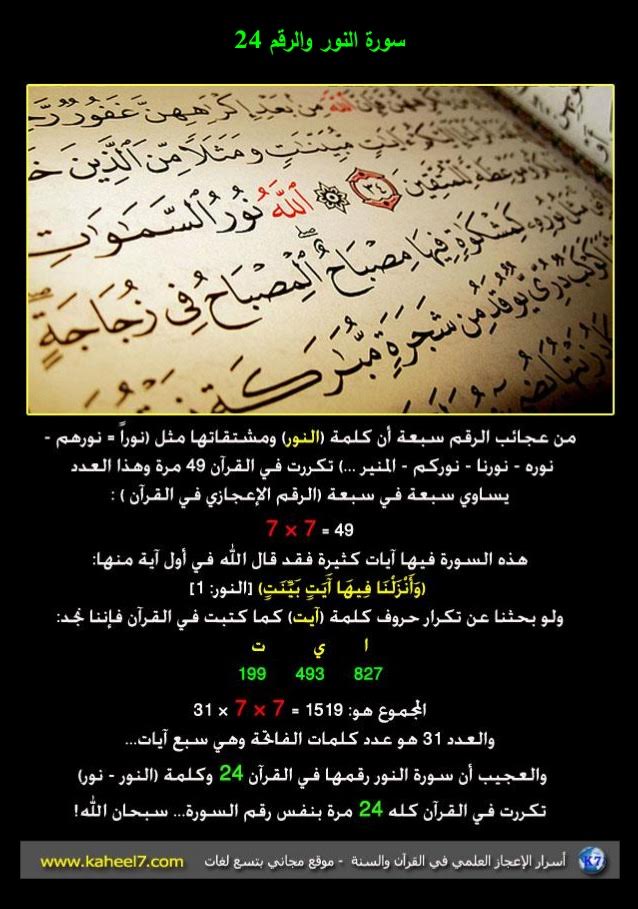 سورة النور والرقم 24
الله مِنْ بَعْدِ إِكْرَاهِهِنَّ غَفُورٌ
ءَايَٰتٍ مُّبَيِّنَٰتٍ وَمَثَلًا مِّنَ ٱلَّذِينَ
وَمَوْعِظَةً لِّلْمُتَّقِينَ ٣٤ ٱللَّهُ نُورُ ٱلسَّمَٰوَٰتِ
مَثَلُ نُورِهِۦ كَمِشْكَوٰةٍ فِيهَا مِصْبَاحٌ ٱلْمِصْبَاحُ فِى زُجَاجَةٍ
كَوْكَبٌ دُرِّىٌّ يُوقَدُ مِن شَجَرَةٍ مُّبَٰرَكَةٍ
من عجائب الرقم سبعة أن كلمة (النور) ومشتقاتها مثل (نوراً = نورهم -
نوره - نورنا - نوركم - المنير ...) تكررت في القرآن 49 مرة وهذا العدد
يساوي سبعة في سبعة (الرقم الإعجازي في القرآن ) :
49 = 7 × 7
هذه السورة فيها آيات كثيرة فقد قال الله في أول آية منها:
(وَأَنْزَلْنَا فِيهَا آَيَتٍ بَيِّنَتٍ) [النور: 1]
ولو بحثنا عن تكرار حروف كلمة (آيت) كما كتبت في القرآن فإننا نجد:
ا ي ت
827 493 199
المجموع هو: 1519 = 7 × 7 × 31
والعدد 31 هو عدد كلمات الفاتحة وهي سبع آيات...
والعجيب أن سورة النور رقمها في القرآن 24 وكلمة (النور - نور)
تكررت في القرآن كله 24 مرة بنفس رقم السورة... سبحان الله!
K7 أسرار الإعجاز العلمي في القرآن والسنة - موقع مجاني بتسع لغات www.kaheel7.com